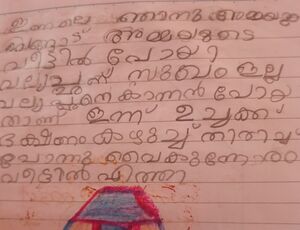 ഇന്നലെ ഞാനും അമ്മയും
അമ്മയുടെ
വീട്ടിൽ പോയി
വല്യച്ഛന് സുഖം ഇല്ല
വല്യച്ഛനെ കാന്നൻ പോയ
താണ് ഇന്ന് ഉച്ചക്ക്
ഭക്ഷണം കഴുച്ച് തിരിച്ചു
പോന്നു വൈകുന്നേരം
വീട്ടിൽ എത്തി